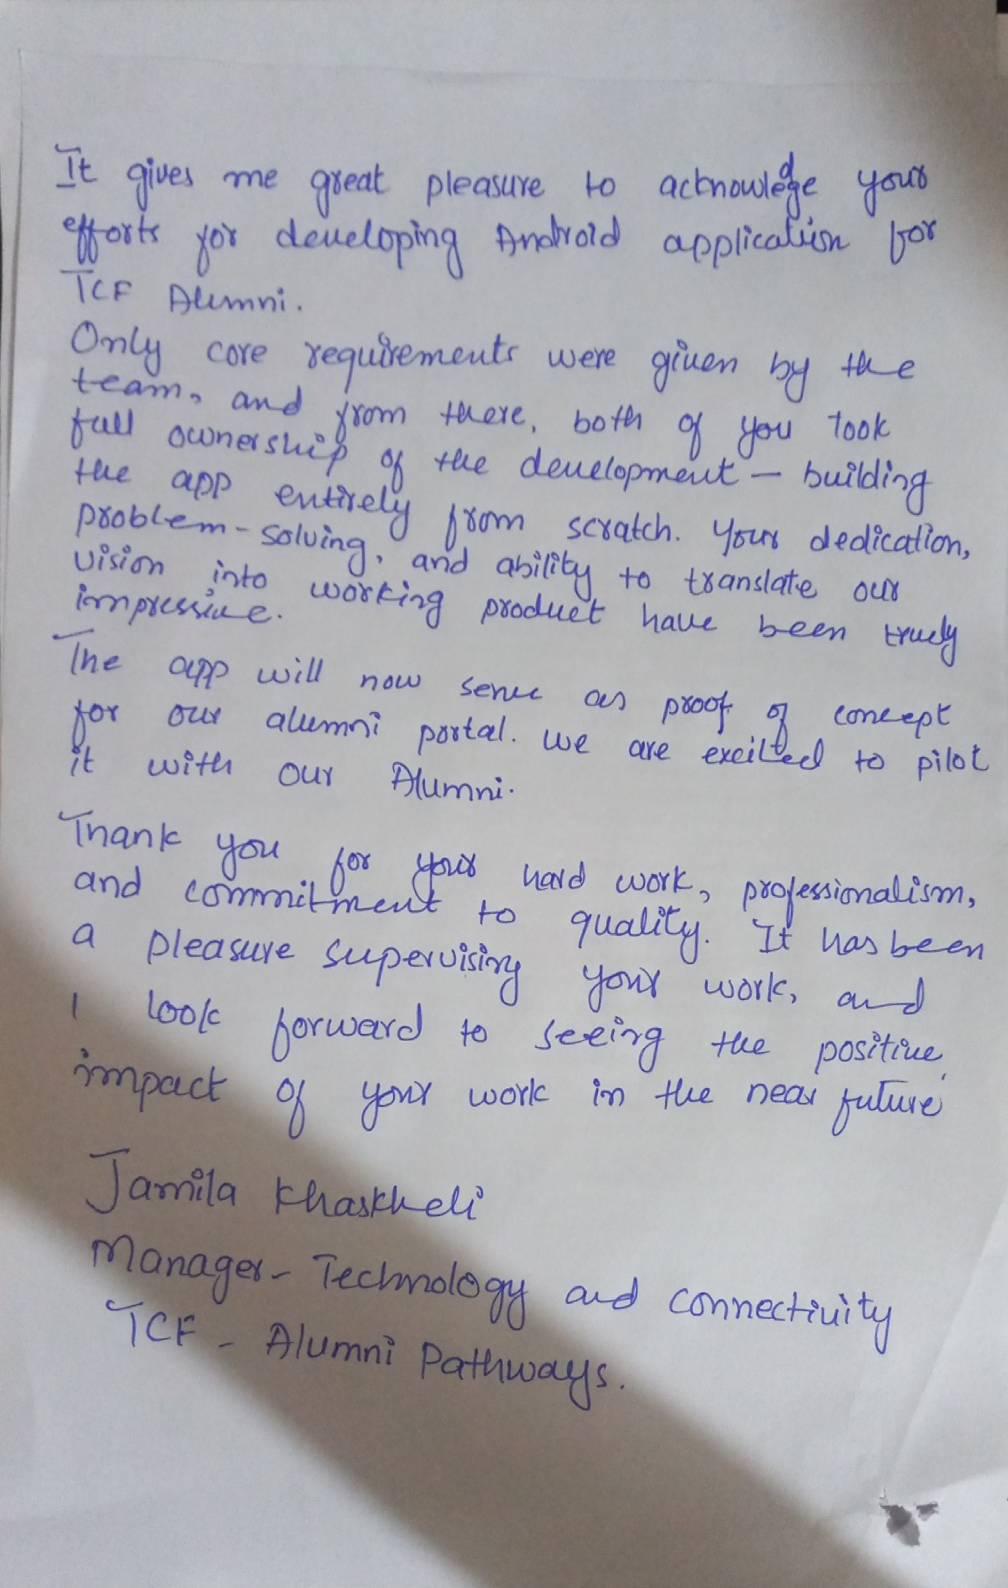 It gives me great pleasure to acknowledge your
efforts for developing Android application for
TCF Alumni.
Only core requirements were given by the
team, and from there, both of you took
full ownership of the development – building
the app entirely from scratch. Your dedication,
problem-solving, and ability to translate our
vision into working product have been truly
impressive.
The app will now serve as proof of concept
for our alumni portal. We are excited to pilot
it with our Alumni.
Thank you for your hard work, professionalism,
and commitment to quality. It has been
a pleasure supervising your work, and
I look forward to seeing the positive
impact of your work in the near future
Jamila Khaskheli
Manager - Technology and Connectivity
TCF - Alumni Pathways.